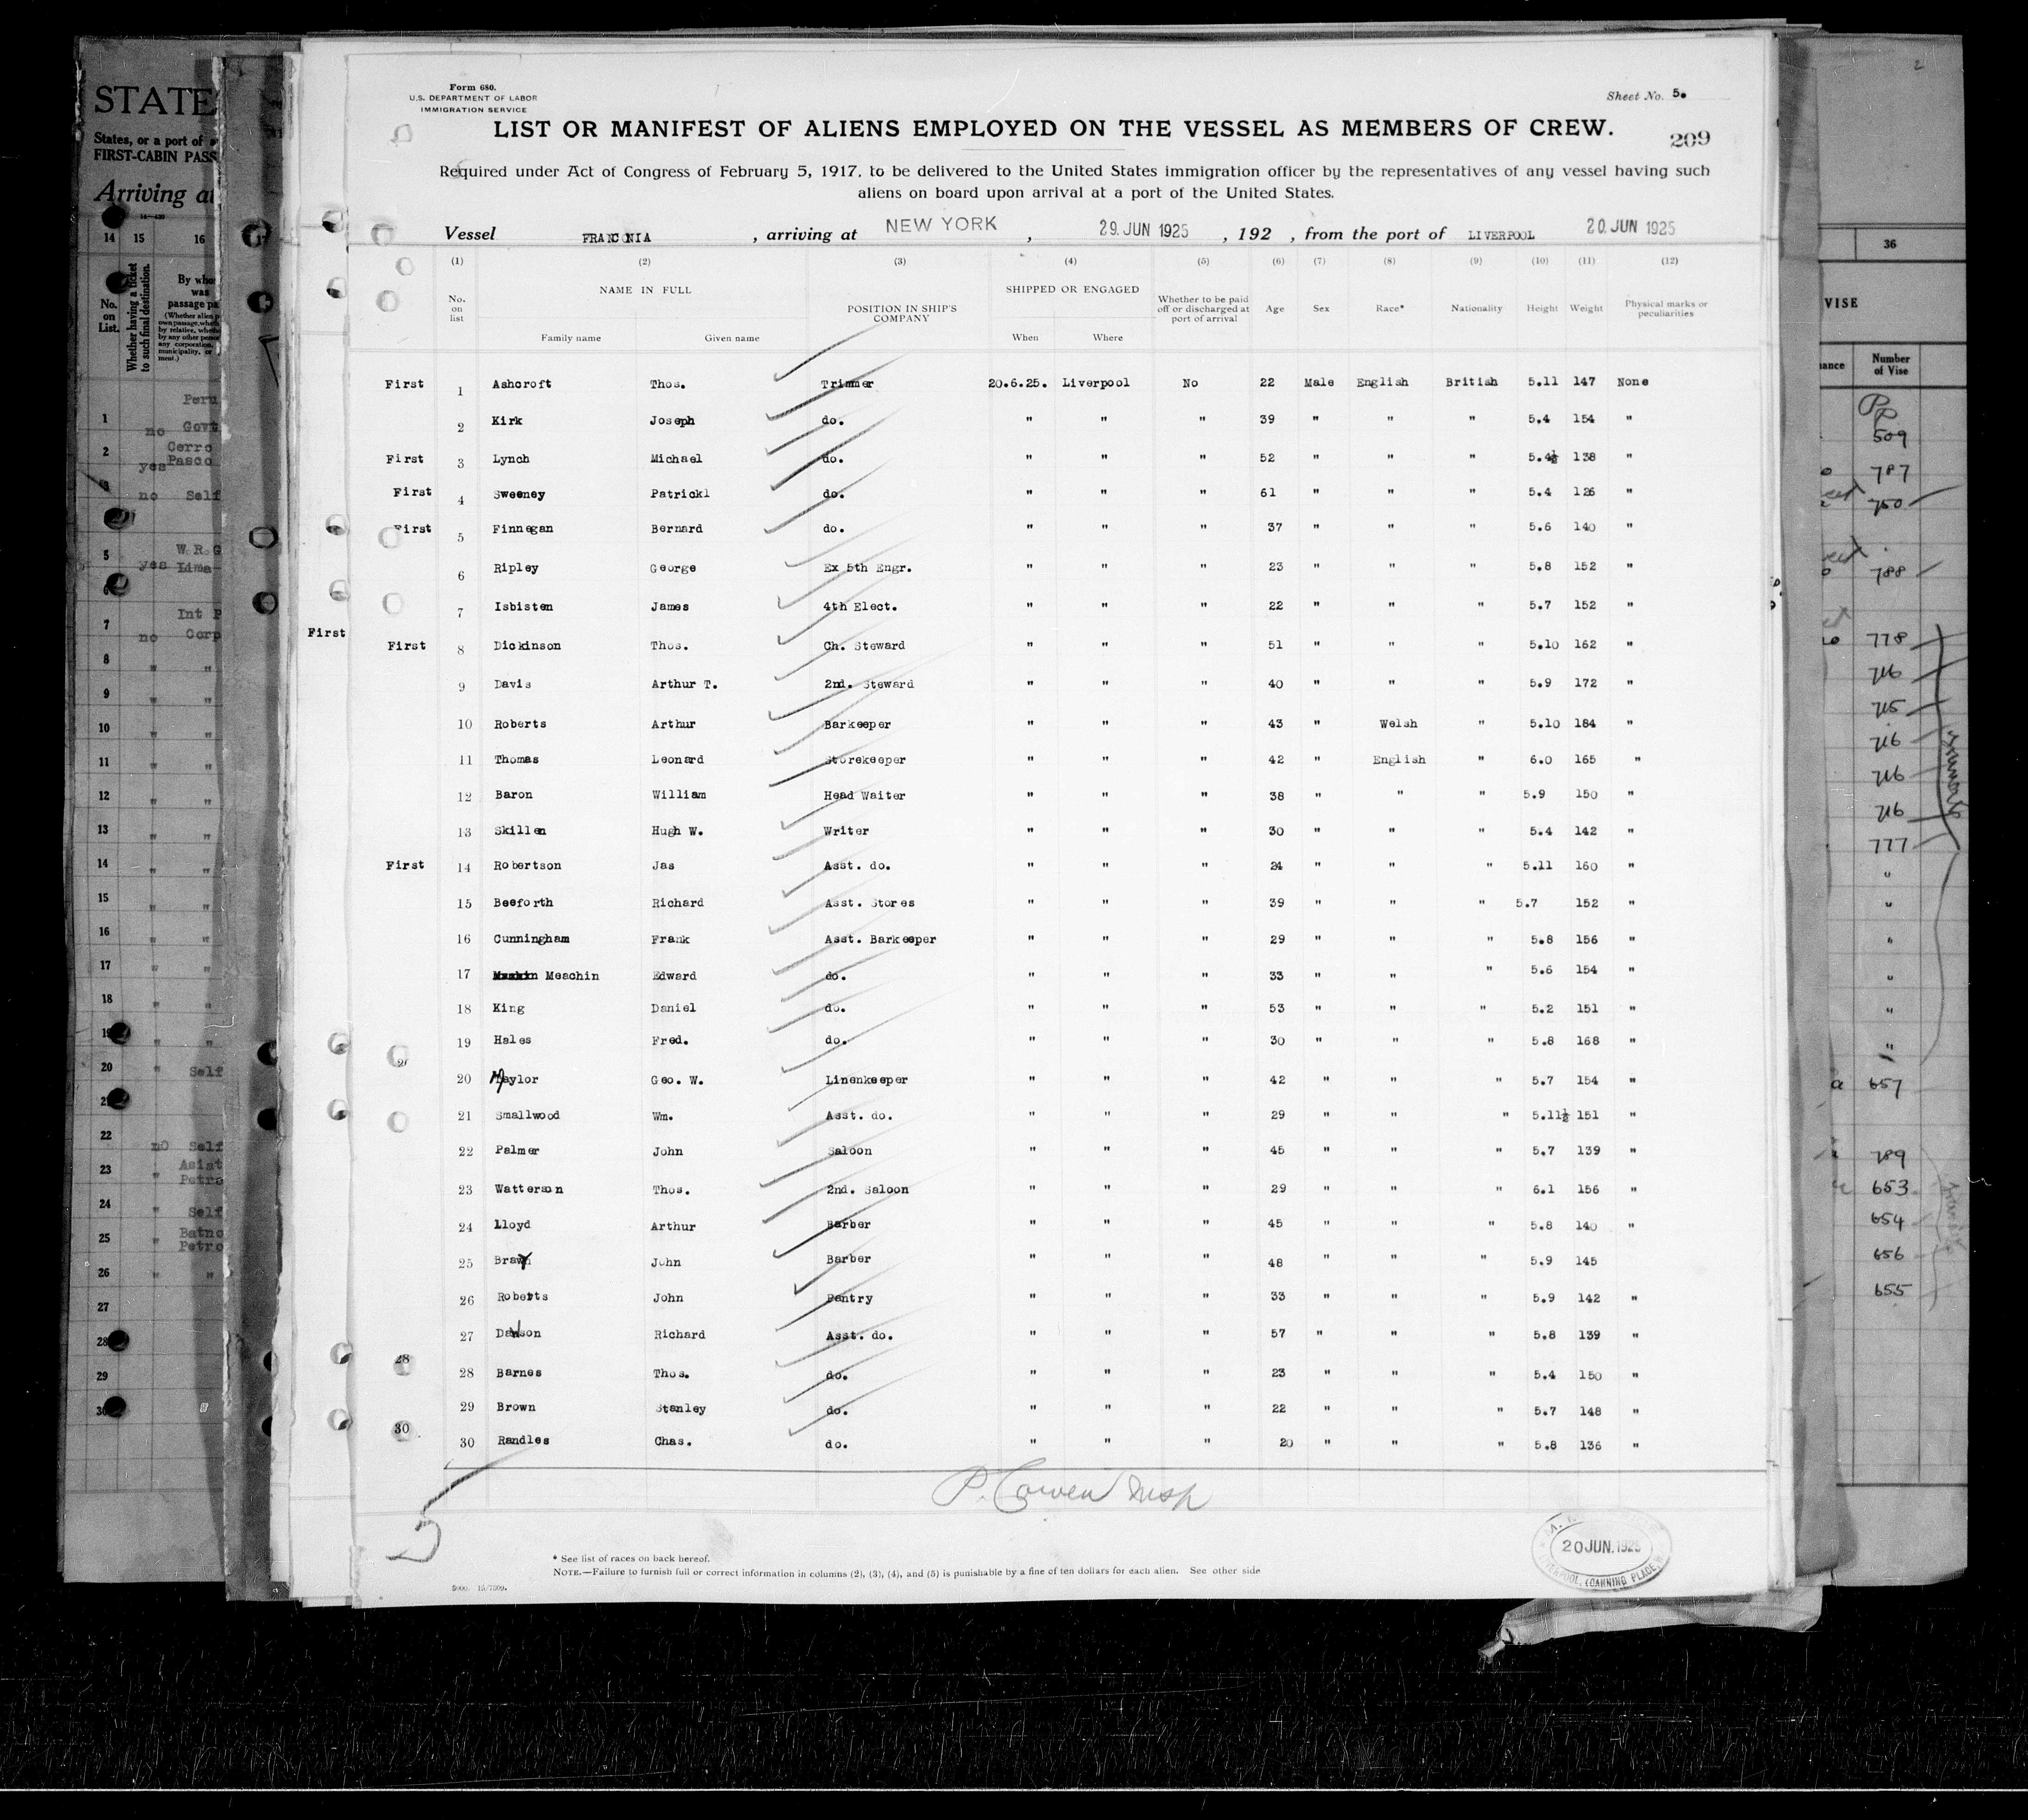 Form 680.
U.S. DEPARTMENT OF LABOR
IMMIGRATION SERVICE
Sheet No. 5.
LIST OR MANIFEST OF ALIENS EMPLOYED ON THE VESSEL AS MEMBERS OF CREW.
209
Required under Act of Congress of February 5, 1917, to be delivered to the United States immigration officer by the representatives of any vessel having such
aliens on board upon arrival at a port of the United States.
Vessel FRANCONIA , arriving at NEW YORK , 29. JUN 1925 , 192 , from the port of LIVERPOOL 20. JUN 1925
(1) (2) (3) (4) (5) (6) (7) (8) (9) (10) (11) (12)
No. on list NAME IN FULL Family name Given name POSITION IN SHIP'S COMPANY SHIPPED OR ENGAGED When Where Whether to be paid off or discharged at port of arrival Age Sex Race* Nationality Height Weight Physical marks or peculiarities
First 1 Ashcroft Thos. Trimmer 20.6.25. Liverpool No 22 Male English British 5.11 147 None
2 Kirk Joseph do. " " " 39 " " " 5.4 154 "
First 3 Lynch Michael do. " " " 52 " " " 5.4½ 138 "
First 4 Sweeney Patrickl do. " " " 61 " " " 5.4 126 "
First 5 Finnegan Bernard do. " " " 37 " " " 5.6 140 "
6 Ripley George Ex 5th Engr. " " " 23 " " " 5.8 152 "
7 Isbisten James 4th Elect. " " " 22 " " " 5.7 152 "
First
First 8 Dickinson Thos. Ch. Steward " " " 51 " " " 5.10 162 "
9 Davis Arthur T. 2nd. Steward " " " 40 " " " 5.9 172 "
10 Roberts Arthur Barkeeper " " " 43 " Welsh " 5.10 184 "
11 Thomas Leonard Storekeeper " " " 42 " English " 6.0 165 "
12 Baron William Head Waiter " " " 38 " " " 5.9 150 "
13 Skillen Hugh W. Writer " " " 30 " " " 5.4 142 "
First 14 Robertson Jas Asst. do. " " " 24 " " " 5.11 160 "
15 Beeforth Richard Asst. Stores " " " 39 " " " 5.7 152 "
16 Cunningham Frank Asst. Barkeeper " " " 29 " " " 5.8 156 "
17 Meachin Edward do. " " " 33 " " " 5.6 154 "
18 King Daniel do. " " " 53 " " " 5.2 151 "
19 Hales Fred. do. " " " 30 " " " 5.8 168 "
20 Naylor Geo. W. Linenkeeper " " " 42 " " " 5.7 154 "
21 Smallwood Wm. Asst. do. " " " 29 " " " 5.11½ 151 "
22 Palmer John Saloon " " " 45 " " " 5.7 139 "
23 Watterson Thos. 2nd. Saloon " " " 29 " " " 6.1 156 "
24 Lloyd Arthur Barber " " " 45 " " " 5.8 140 "
25 John Barber " " " 48 " " " 5.9 145
26 Roberts John Pantry " " " 33 " " " 5.9 142 "
27 Dawson Richard Asst. do. " " " 57 " " " 5.8 139 "
28 28 Barnes Thos. do. " " " 23 " " " 5.4 150 "
29 Brown Stanley do. " " " 22 " " " 5.7 148 "
30 30 Randles Chas. do. " " " 20 " " " 5.8 136 "
P. Cowen Insp
5
20 JUN. 1925
LIVERPOOL, (CANNING PLACE)
* See list of races on back hereof.
NOTE.—Failure to furnish full or correct information in columns (2), (3), (4), and (5) is punishable by a fine of ten dollars for each alien. See other side
STATE
States, or a port of
FIRST-CABIN PASS
Arriving at
14 15 16
No. on List.
Whether having a ticket to such final destination.
1 Peru
no Govt
2 Cerro
yes Pasco
no Self
5 W. R. G
yes Lima
7 Int P
no Corp
8 " "
9 " "
10 " "
11 " "
12 " "
13 " "
14 " "
15 " "
16 " "
17 " "
18 " "
19 " "
20 " Self
22 no Self
23 " Asist
Petro
24 " Self
25 " Batno
Petro
26 " "
27
28
29
30
2
36
VISE
Number of Vise
509
787
750
788
778
716
715
716
716
716
777
"
"
"
"
"
"
657
789
653
654
656
655